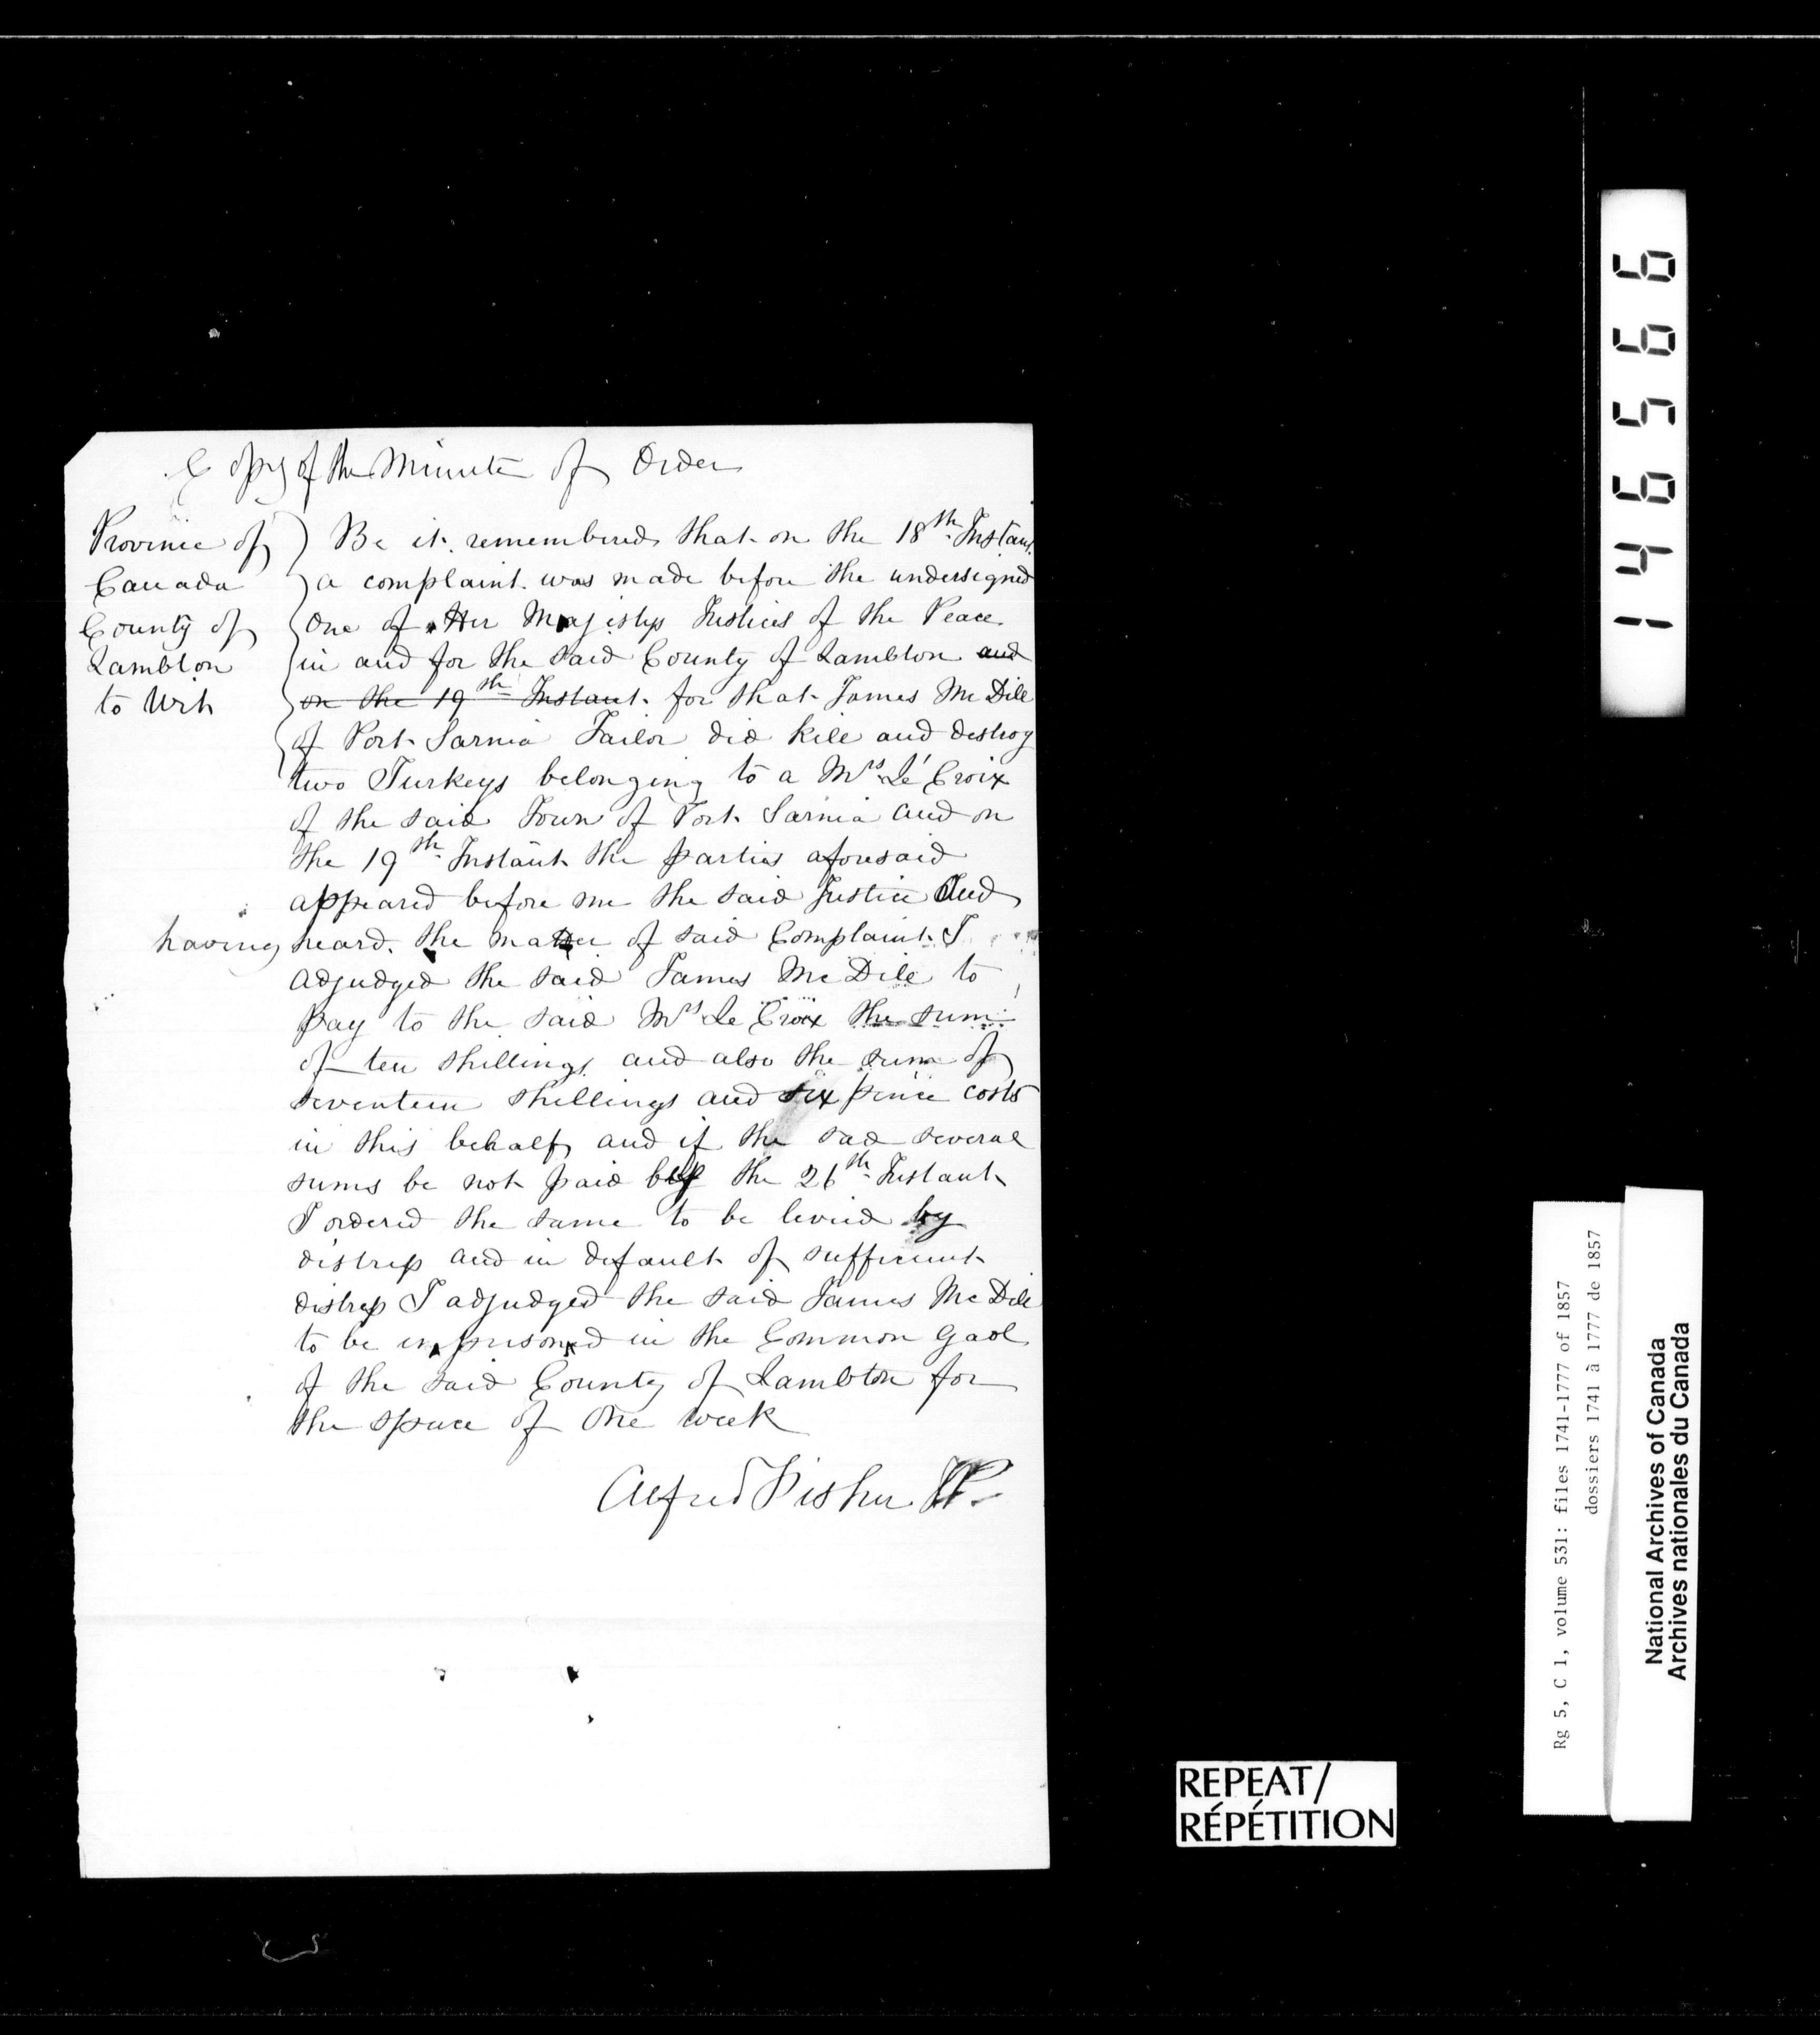 Copy of the Minute of Order
Province of
Canada
County of
Lambton
to Wit
Be it remembered that on the 18th Instant
a complaint was made before the undersigned
One of Her Majestys Justices of the Peace
in and for the said County of Lambton and
on the 19th Instant for that James Mc Dill
of Port Sarnia Tailor did kill and destroy
two Turkeys belonging to a Mrs Le Croix
of the said Town of Port Sarnia and on
the 19th Instant the parties aforesaid
appeared before me the said Justice And
having heard the matter of said Complaint I
adjudged the said James Mc Dill to
pay to the said Mrs Le Croix the sum
of ten shillings and also the sum of
seventeen shillings and six pence costs
in this behalf and if the sad several
sums be not paid by the 26th Instant
I ordered the same to be levied by
distress and in default of sufficient
distress I adjudged the said James Mc Dill
to be imprisoned in the Common Gaol
of the said County of Lambton for
the space of One week
Alfred Fisher JP.
146566
Rg 5, C 1, volume 531: files 1741-1777 of 1857
dossiers 1741 à 1777 de 1857
National Archives of Canada
Archives nationales du Canada
REPEAT/
RÉPÉTITION